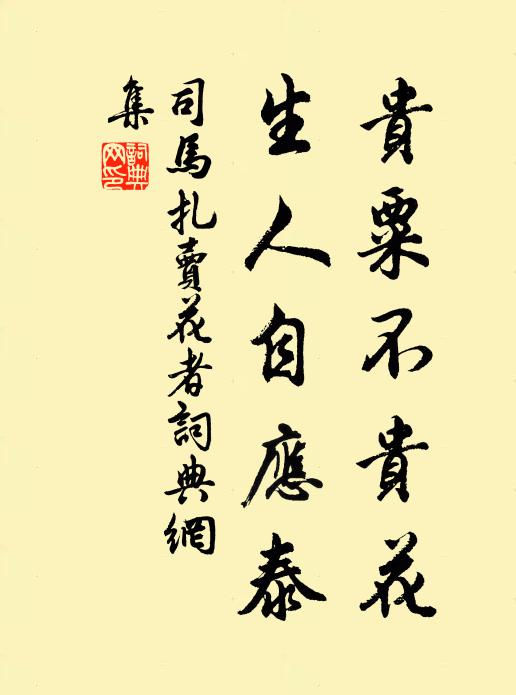 貴粟不貴花
生人自應泰
司馬扎賣花者詞典網
集
詞典網印